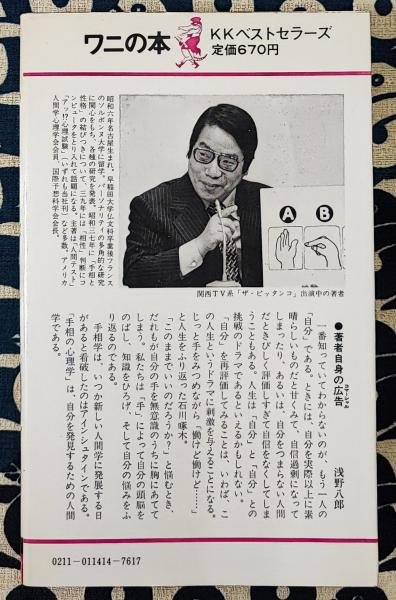 ワニの本
KKベストセラーズ
定価670円
昭和六年名古屋生まれ。早稲田大学仏文科卒業後フランス
のソルボンヌ大学に留学。パーソナリティの多角的な研究
に関心をもち、各種の研究を発表。昭和三七年に「手相と
性格」の結びつきについて、三九年には「相性」判断にコ
ンピュータをとり入れて話題になる。主著は「人間テスト」
「アッ!?心理試験」(いずれも当社刊)など多数。アメリカ
人間学心理学会会員、国際予想科学会会長。
A
B
関西TV系「ザ・ビッタンコ」出演中の著者
●著者自身の広告
コマーシャル
浅野八郎
一番知っていてわからないのが、もう一人の
「自分」である。ときには、自分を実際以上に素
晴らしいものだと甘くみて、自信過剰になって
しまったり、あるいは、自分をつまらない人間
だときびしく評価しすぎて自信をなくしてしま
うこともある。人生は「自分」と「自分」との
挑戦のドラマであるといえるかもしれない。
「自分」を再評価してみることは、いわば、こ
の人生というドラマに刺激を与えることになる。
じっと手をみつめながら「働けど働けど……」
と人生をふり返った石川啄木。
「このままでいいのだろうか?」と悩むとき、
だれもが自分の手を無意識のうちに胸にあてて
しまう。私たちは「手」によって自分の頭脳を
のばし、知識をひろげ、そして自分の悩みをふ
り返るのである。
手相学は、いつか新しい人間学に発展する日
があると看破したのはアインシュタインである。
「手相の心理学」は、自分を発見するための人間
学である。
0211-011414-7617